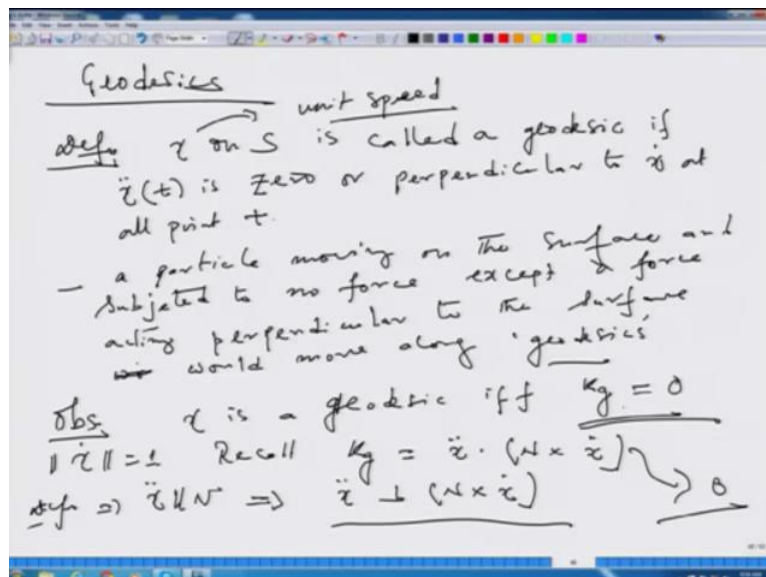 Geodesics
unit speed
Defn γ on S is called a geodesic if
γ̈(t) is zero or perpendicular to γ̇ at
all point t.
— a particle moving on the surface and
subjeted to no force except a force
acting perpendicular to the surface
would move along 'geodesics'
Obs. γ is a geodesic iff Kg = 0
||γ̇|| = 1 Recall Kg = γ̈ · (N × γ̇) → 0
Defn ⇒ γ̈ || N ⇒ γ̈ ⊥ (N × γ̇)